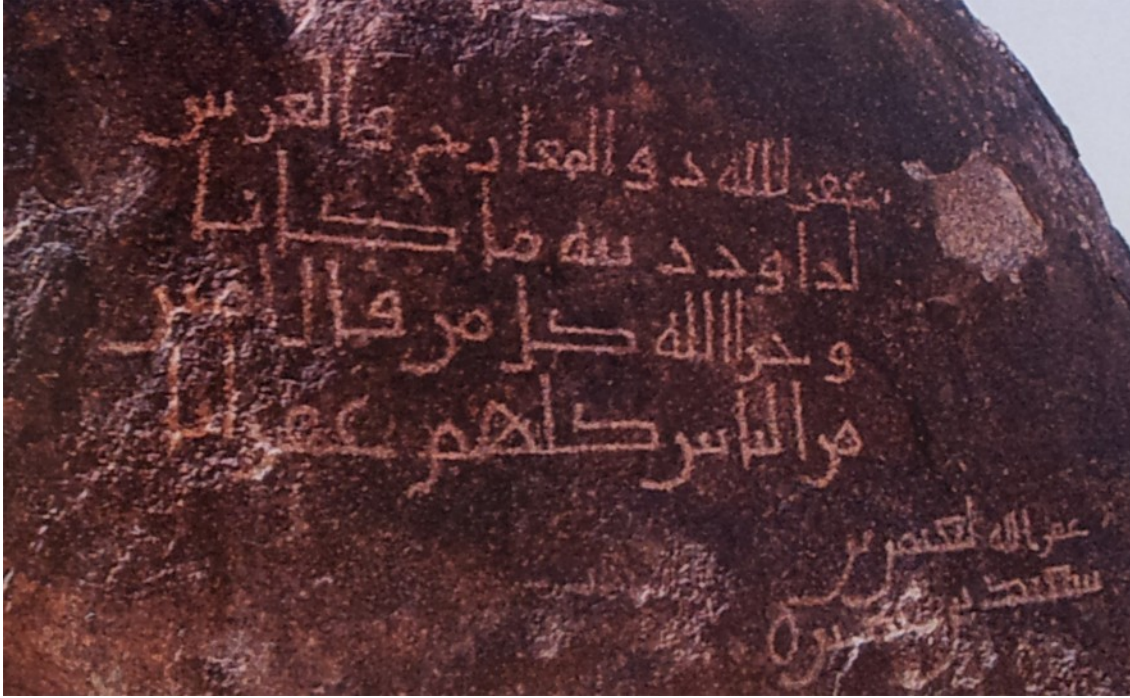 يغفر الله ذو المعارج والعرش
لداود ذنبه ما كانا
وجزا الله كل من قال امين
من الناس كلهم غفرانا
غفر الله بن
سعيد بن